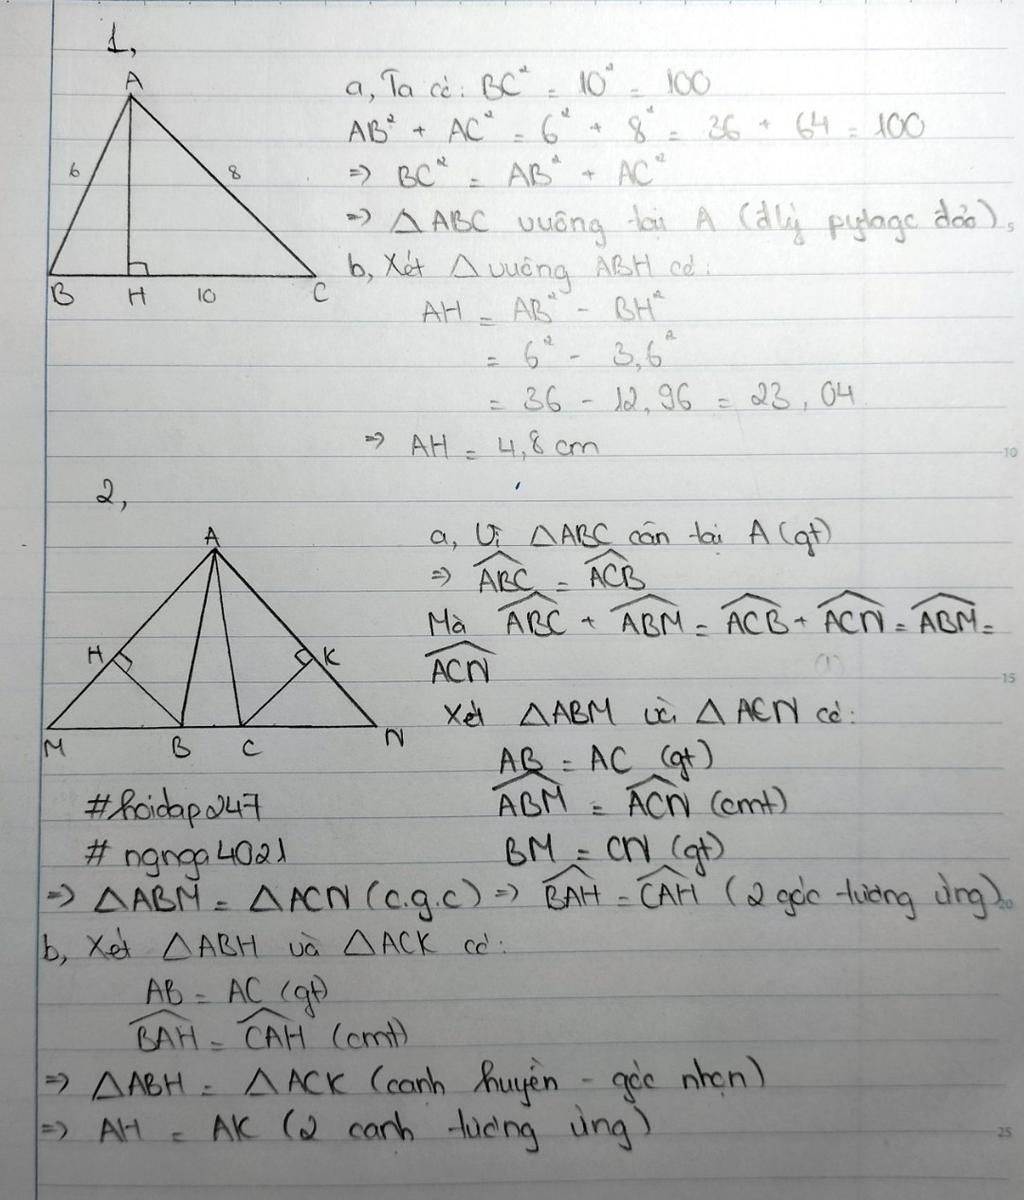 1,
A
6
8
B H 10 C
a, Ta có: BC² = 10² = 100
AB² + AC² = 6² + 8² = 36 + 64 = 100
=> BC² = AB² + AC²
=> △ABC vuông tại A (đlý pytago đảo)
5
b, Xét △vuông ABH có:
AH = AB² - BH²
= 6² - 3,6²
= 36 - 12,96 = 23,04
=> AH = 4,8 cm
10
2,
A
H K
M B C N
a, Vì △ABC cân tại A (gt)
=> \widehat{ABC} = \widehat{ACB}
Mà \widehat{ABC} + \widehat{ABM} = \widehat{ACB} + \widehat{ACN} = \widehat{ABM} =
\widehat{ACN} (1)
15
Xét △ABM và △ACN có:
AB = AC (gt)
\widehat{ABM} = \widehat{ACN} (cmt)
BM = CN (gt)
#hoidap247
#ngnga4021
=> △ABM = △ACN (c.g.c) => \widehat{BAH} = \widehat{CAH} (2 góc tương ứng)
20
b, Xét △ABH và △ACK có:
AB = AC (gt)
\widehat{BAH} = \widehat{CAH} (cmt)
=> △ABH = △ACK (cạnh huyền - góc nhọn)
=> AH = AK (2 cạnh tương ứng)
25